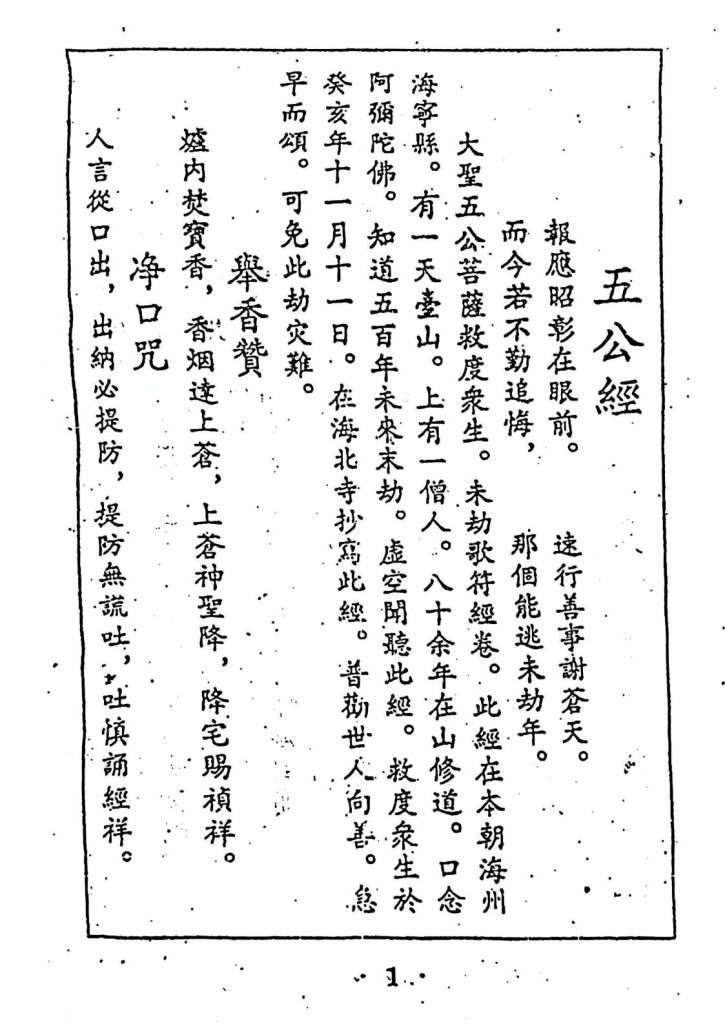 五公經
報應昭彰在眼前。　速行善事謝蒼天。
而今若不勤追悔，　那個能逃未劫年。
大聖五公菩薩救度衆生。未劫歌符經卷。此經在本朝海州
海寧縣。有一天臺山。上有一僧人。八十余年在山修道。口念
阿彌陀佛。知道五百年未來末劫。虛空聞聽此經。救度衆生於
癸亥年十一月十一日。在海北寺抄寫此經。普勸世人向善。急
早而頌。可免此劫灾難。
舉香贊
爐内焚寶香，香烟達上蒼，上蒼神聖降，降宅賜禎祥。
净口咒
人言從口出，出納必提防，提防無謊吐，吐慎誦經祥。
1